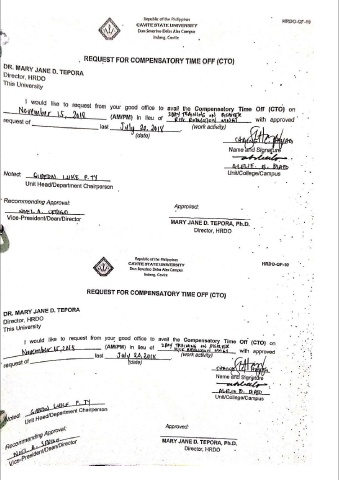 HRDO-QF-19
Republic of the Philippines
CAVITE STATE UNIVERSITY
Don Severino Delas Alas Campus
Indang, Cavite
REQUEST FOR COMPENSATORY TIME OFF (CTO)
DR. MARY JANE D. TEPORA
Director, HRDO
This University
I would like to request from your good office to avail the Compensatory Time Off (CTO) on
November 15, 2018 (AM/PM) in lieu of with approved
request of last July 20, 2018 (work activity)
(date)
Name and Signature
Unit/College/Campus
Noted:
Unit Head/Department Chairperson
Recommending Approval:
Vice-President/Dean/Director
Approved:
MARY JANE D. TEPORA, Ph.D.
Director, HRDO
HRDO-QF-19
Republic of the Philippines
CAVITE STATE UNIVERSITY
Don Severino Delas Alas Campus
Indang, Cavite
REQUEST FOR COMPENSATORY TIME OFF (CTO)
DR. MARY JANE D. TEPORA
Director, HRDO
This University
I would like to request from your good office to avail the Compensatory Time Off (CTO) on
November 15, 2018 (AM/PM) in lieu of with approved
request of last July 20, 2018 (work activity)
(date)
Name and Signature
Unit/College/Campus
Noted:
Unit Head/Department Chairperson
Recommending Approval:
Vice-President/Dean/Director
Approved:
MARY JANE D. TEPORA, Ph.D.
Director, HRDO